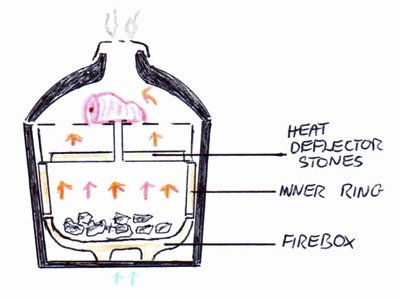 HEAT
DEFLECTOR
STONES
INNER RING
FIREBOX